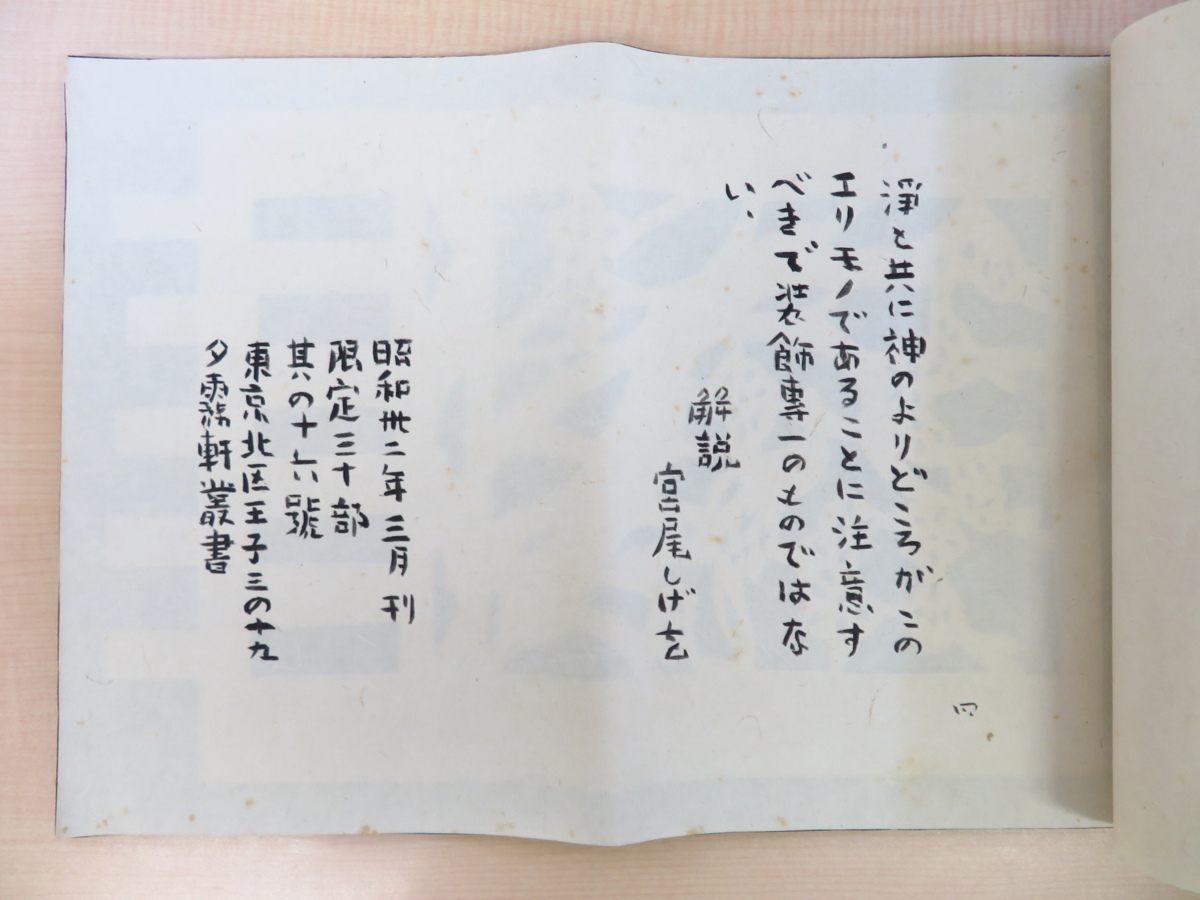 淨と共に神のよりどころがこの
エリモノであることに注意す
べきで装飾專一のものではな
い、
解説
宮尾しげを
四
昭和卅二年三月刊
限定三十部
其の十六號
東京北区王子三の十九
夕霧軒叢書